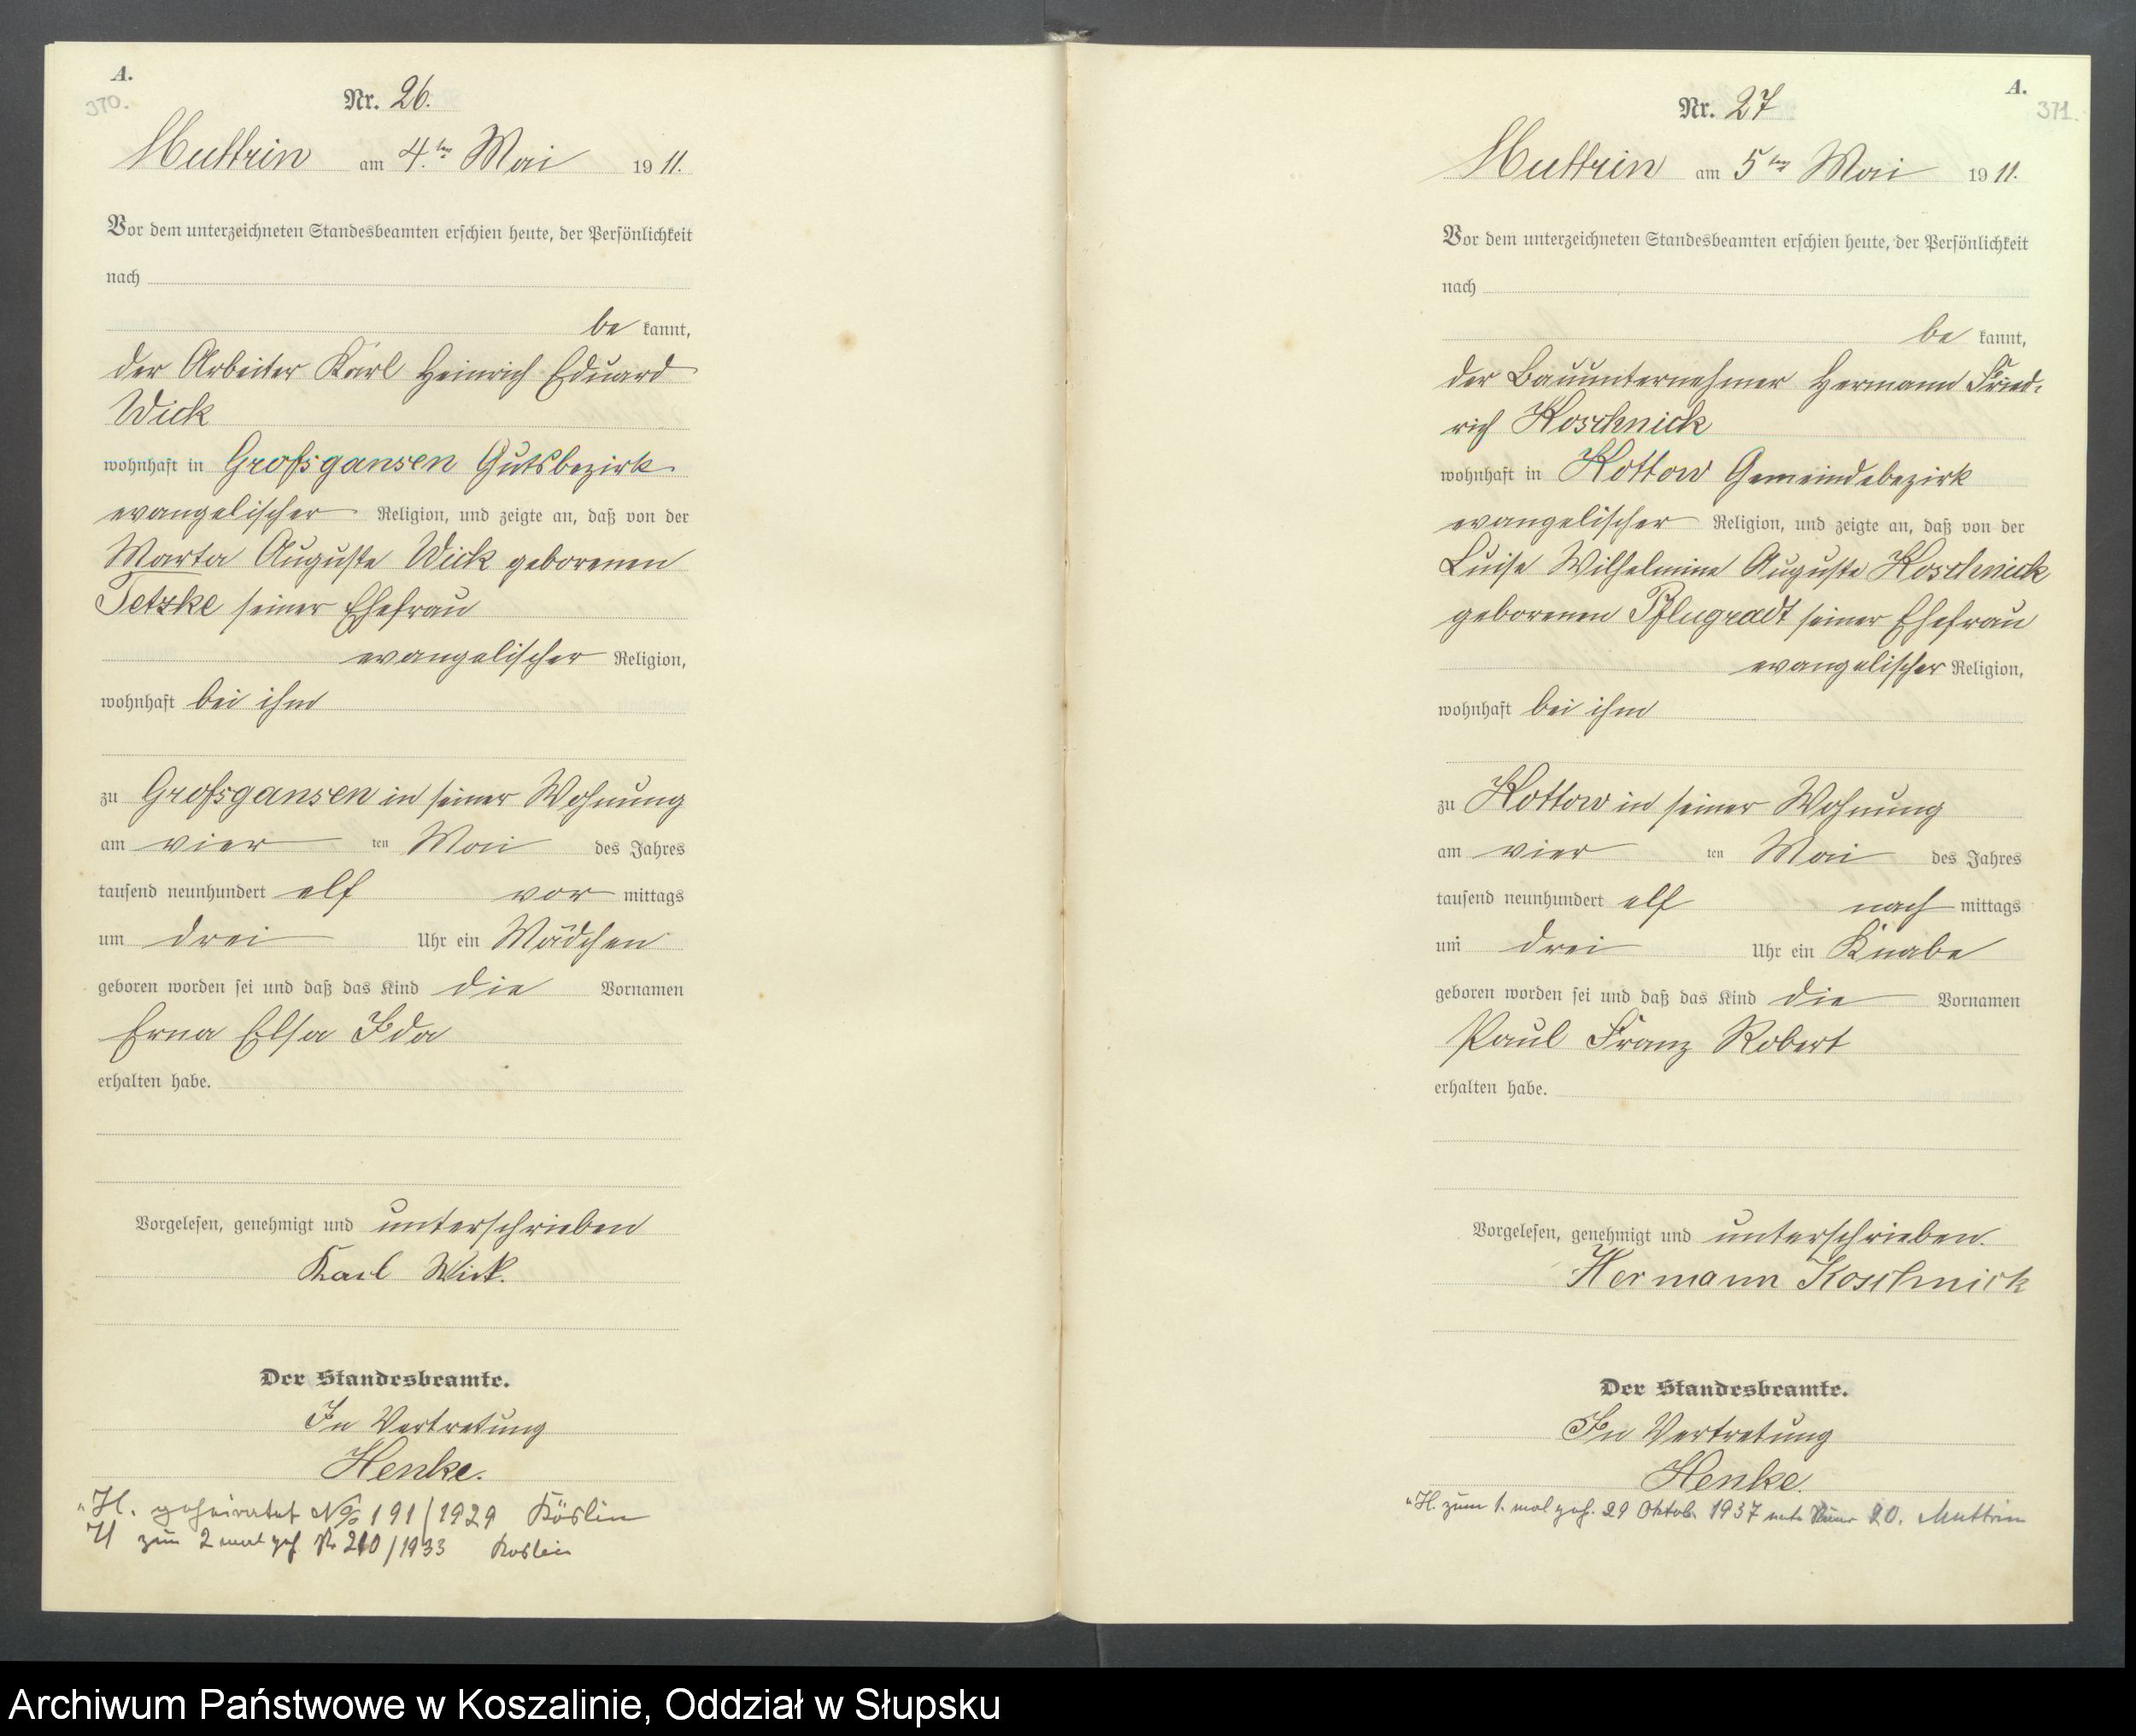 A.
370.
Nr. 26.
Muttrin am 4.ten Mai 1911.
Vor dem unterzeichneten Standesbeamten erschien heute, der Persönlichkeit
nach
be kannt,
der Arbeiter Karl Heinrich Eduard
Wick
wohnhaft in Großgansen Gutsbezirk
evangelischer Religion, und zeigte an, daß von der
Marta Auguste Wick geborenen
Tetzke seiner Ehefrau
evangelischer Religion,
wohnhaft bei ihm
zu Großgansen in seiner Wohnung
am vier ten Mai des Jahres
tausend neunhundert elf vor mittags
um drei Uhr ein Mädchen
geboren worden sei und daß das Kind die Vornamen
Erna Elsa Ida
erhalten habe.
Vorgelesen, genehmigt und unterschrieben
Karl Wick.
Der Standesbeamte.
In Vertretung
Henke.
"H. geheiratet No 191/1929 Köslin
H zum 2 mal geh. Nr 210/1933 Köslin
A.
371.
Nr. 27
Muttrin am 5ten Mai 1911.
Vor dem unterzeichneten Standesbeamten erschien heute, der Persönlichkeit
nach
be kannt,
der Bauunternehmer Hermann Fried-
rich Koschnick
wohnhaft in Kottow Gemeindebezirk
evangelischer Religion, und zeigte an, daß von der
Luise Wilhelmine Auguste Koschnick
geborenen Pflugradt seiner Ehefrau
evangelischer Religion,
wohnhaft bei ihm
zu Kottow in seiner Wohnung
am vier ten Mai des Jahres
tausend neunhundert elf nach mittags
um drei Uhr ein Knabe
geboren worden sei und daß das Kind die Vornamen
Paul Franz Robert
erhalten habe.
Vorgelesen, genehmigt und unterschrieben.
Hermann Koschnick
Der Standesbeamte.
In Vertretung
Henke.
"H. zum 1. mal geh. 29 Oktob. 1937 20. Muttrin
Archiwum Państwowe w Koszalinie, Oddział w Słupsku